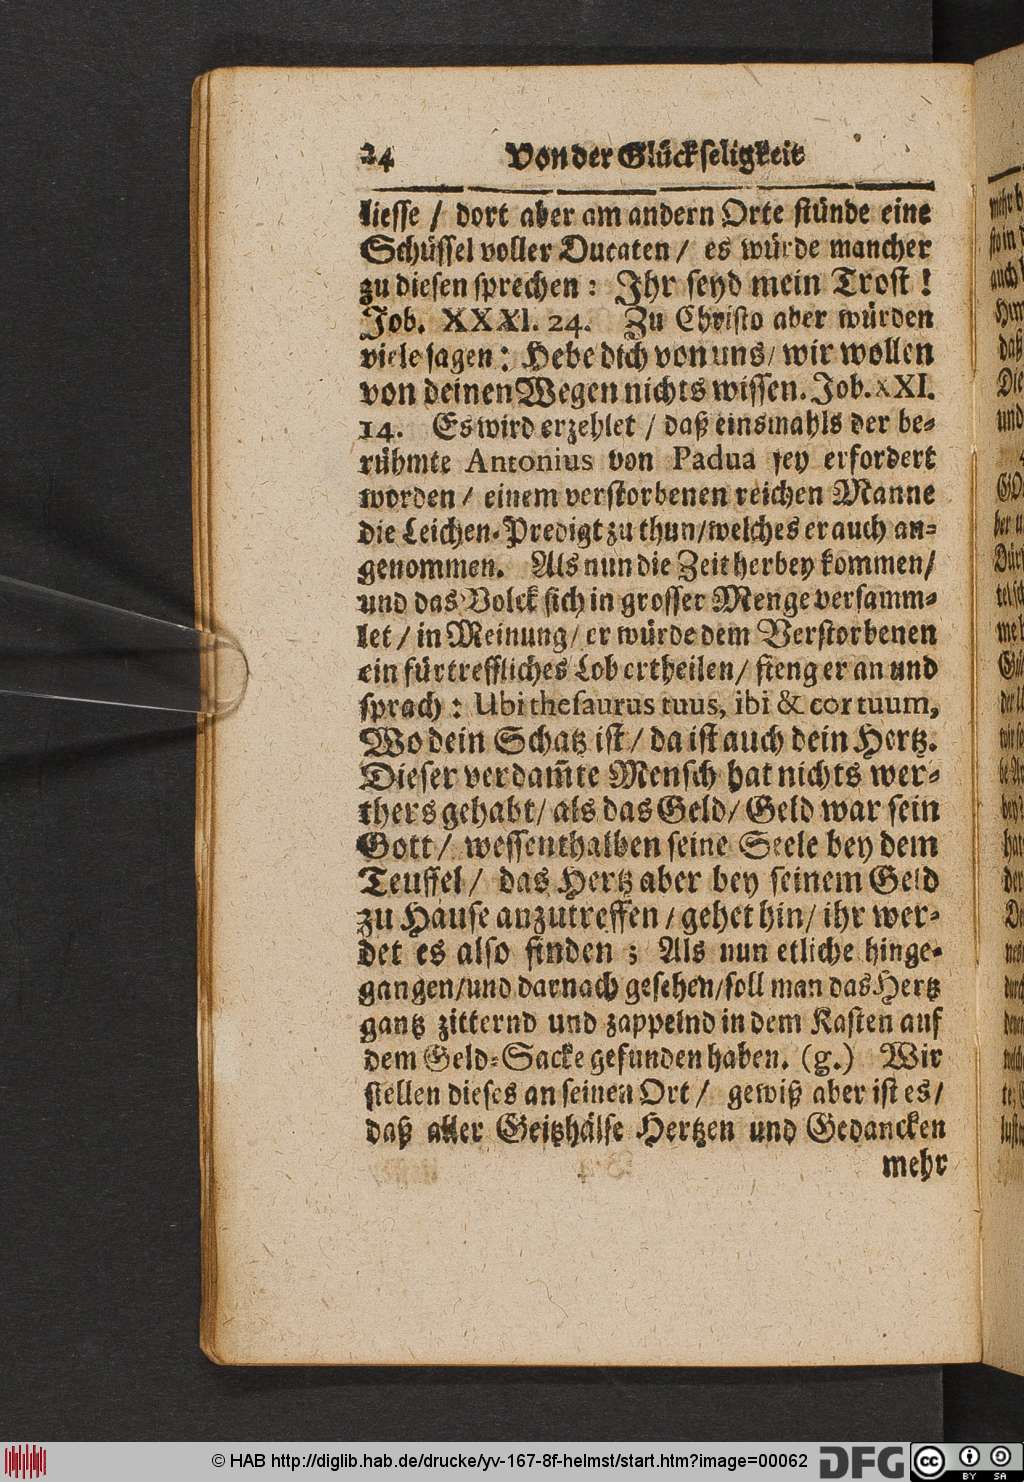 24 Von der Glückseligkeit
liesse / dort aber am andern Orte stünde eine
Schüssel voller Ducaten / es würde mancher
zu diesen sprechen : Ihr seyd mein Trost !
Job. XXXI. 24. Zu Christo aber würden
viele sagen : Hebe dich von uns / wir wollen
von deinen Wegen nichts wissen. Job. XXI.
14. Es wird erzehlet / daß einsmahls der be-
rühmte Antonius von Padua sey erfordert
worden / einem verstorbenen reichen Manne
die Leichen-Predigt zu thun / welches er auch an-
genommen. Als nun die Zeit herbey kommen /
und das Volck sich in grosser Menge versamm-
let / in Meinung / er würde dem Verstorbenen
ein fürtreffliches Lob ertheilen / fieng er an und
sprach : Ubi thesaurus tuus, ibi & cor tuum,
Wo dein Schatz ist / da ist auch dein Hertz.
Dieser verdam̃te Mensch hat nichts wer-
thers gehabt / als das Geld / Geld war sein
Gott / wessenthalben seine Seele bey dem
Teuffel / das Hertz aber bey seinem Geld
zu Hause anzutreffen / gehet hin / ihr wer-
det es also finden ; Als nun etliche hinge-
gangen / und darnach gesehen / soll man das Hertz
gantz zitternd und zappelnd in dem Kasten auf
dem Geld-Sacke gefunden haben. (g.) Wir
stellen dieses an seinen Ort / gewiß aber ist es /
daß aller Geitzhälse Hertzen und Gedancken
mehr
© HAB http://diglib.hab.de/drucke/yv-167-8f-helmst/start.htm?image=00062
DFG
CC BY SA